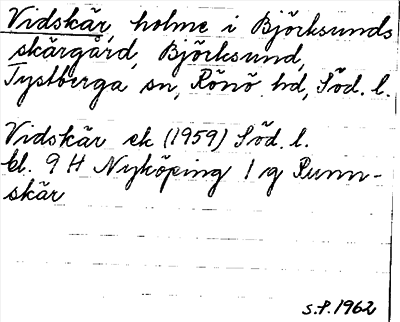 Vidskär, holme i Björksunds
skärgård, Björksund,
Tystberga sn, Rönö hd, Söd. l.
Vidskär ek (1959) Söd. l.
bl. 9 H Nyköping 1 g Runn-
skär
s.f. 1962